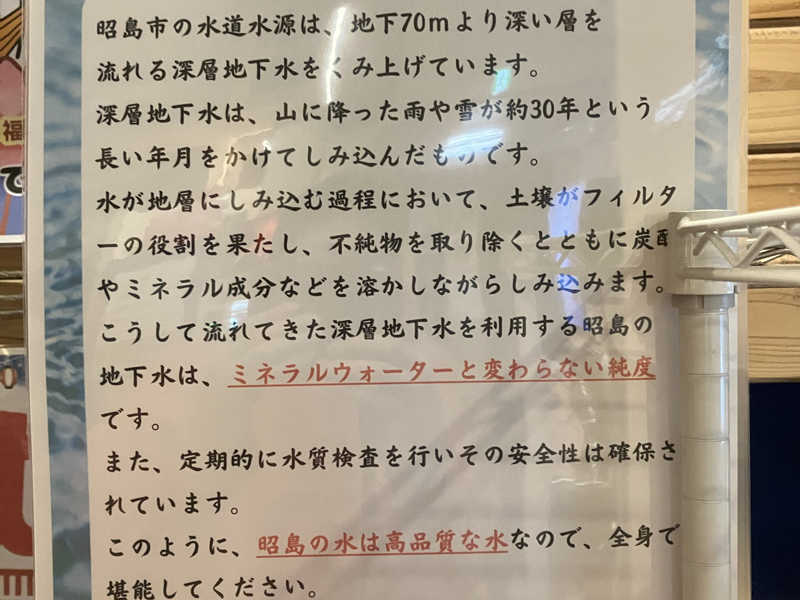 昭島市の水道水源は、地下70mより深い層を
流れる深層地下水をくみ上げています。
深層地下水は、山に降った雨や雪が約30年という
長い年月をかけてしみ込んだものです。
水が地層にしみ込む過程において、土壌がフィルタ
ーの役割を果たし、不純物を取り除くとともに炭酸
やミネラル成分などを溶かしながらしみ込みます。
こうして流れてきた深層地下水を利用する昭島の
地下水は、ミネラルウォーターと変わらない純度
です。
また、定期的に水質検査を行いその安全性は確保さ
れています。
このように、昭島の水は高品質な水なので、全身で
堪能してください。
福
で